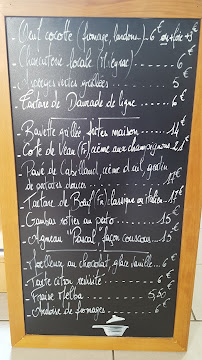 - Oeuf cocotte (fromage, lardons...) 6€
- Charcuterie locale (Meyrac) 6€
- Asperges vertes grillées 5€
- Tartare de Daurade de ligne 6€
- Bavette grillée frites maison 14€
- Cote de Veau (Fr) crème aux champignons 21€
- Pavé de Cabillaud, crème d'ail, gratin de patates douces 17€
- Tartare de Boeuf (Fr) classique ou italien 17€
- Gambas roties au pesto 15€
- Agneau "Pascal" façon couscous 15€
- Moelleux au chocolat, glace vanille 6€
- Tarte citron revisitée 6€
- Fraise Melba 5,50€
- Ardoise de fromages 6€